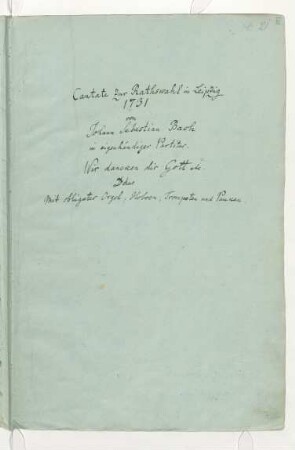 Cantate zur Rathswahl in Leipzig
1731
von
Johann Sebastian Bach
in eigenhändiger Partitur.
Wir dancken dir Gott etc
D dur
Mit obligater Orgel, Hoboen, Trompeten und Pauken